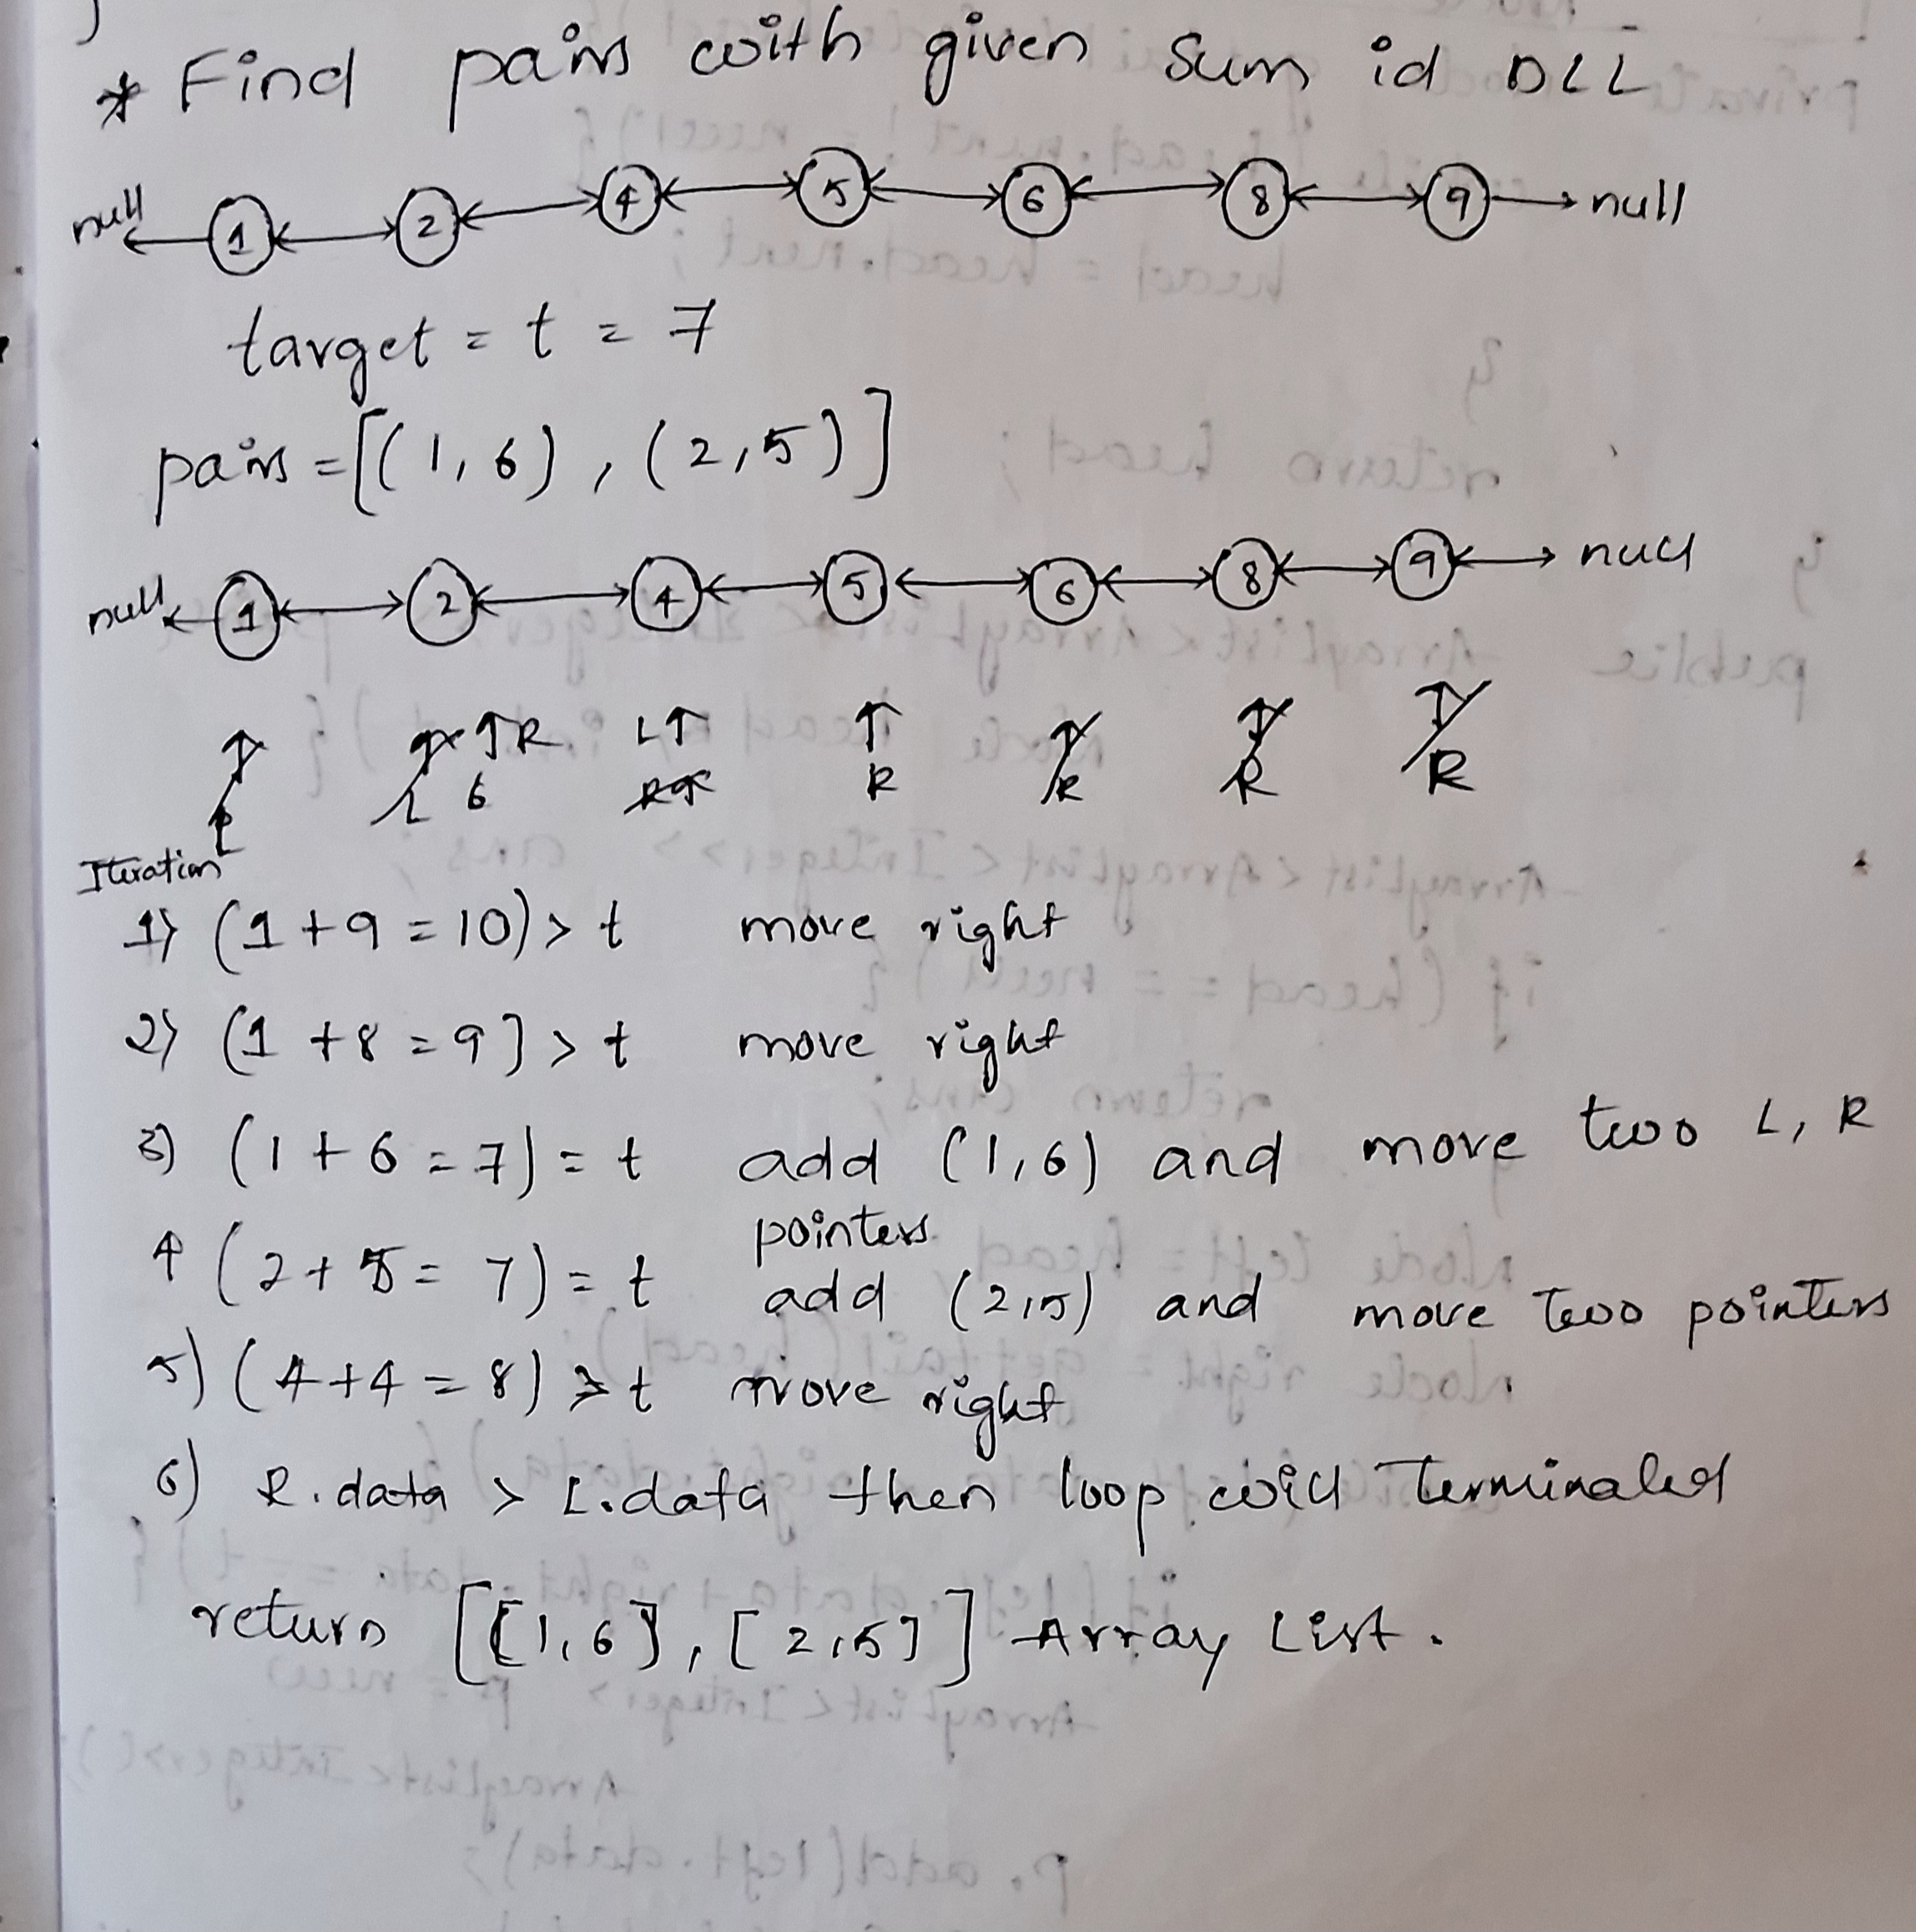 * Find pairs with given sum id DLL
null 1 2 4 5 6 8 9 null
target = t = 7
pairs = [(1,6), (2,5)]
null 1 2 4 5 6 8 9 null
R L R R R R
L L 6 R
Iteration
1) (1+9=10) > t move right
2) (1+8=9] > t move right
3) (1+6=7) = t add (1,6) and move two L, R
pointers
4 (2+5=7) = t add (2,5) and move two pointers
5) (4+4=8) > t move right
6) R.data > L.data then loop will Terminated
return [[1,6], [2,5]] Array List.